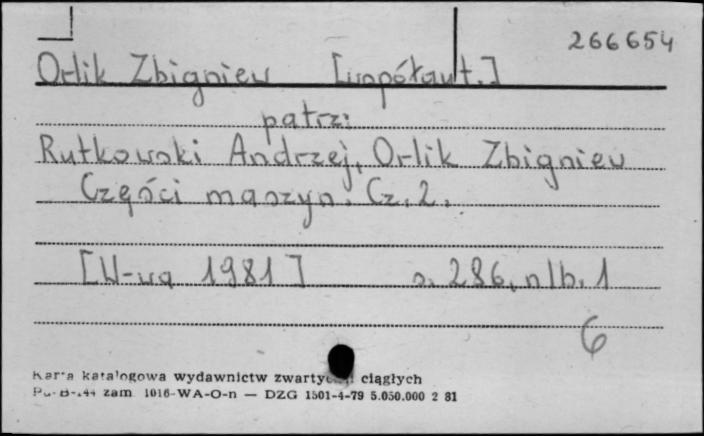 266654
Orlik Zbigniew [współaut.]
patrz:
Rutkowski Andrzej, Orlik Zbigniew
Części maszyn. Cz. 2.
[W-wa 1981] s. 286, nlb. 1
6
Karta katalogowa wydawnictw ciągłych
zam. 1016-WA-O-n — DZG 1501-4-79 5.050.000 2 81